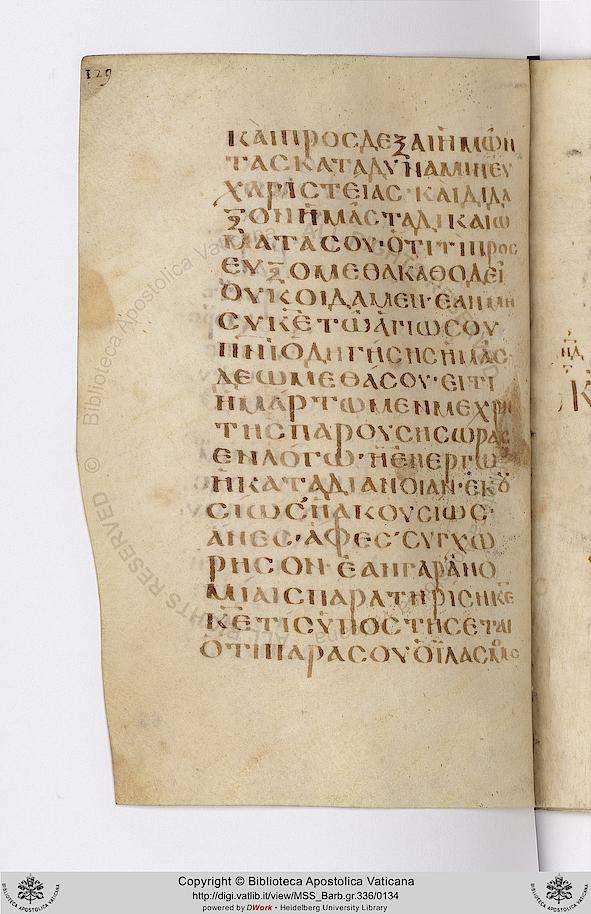 129
ΚΑΙΠΡΟΣΔΕΞΑΙΗΜΩΝ
ΤΑΣΚΑΤΑΔΥΝΑΜΙΝΕΥ
ΧΑΡΙΣΤΕΙΑΣ·ΚΑΙΔΙΔΑ
ΞΟΝΗΜΑΣΤΑΔΙΚΑΙΩ
ΜΑΤΑΣΟΥ·ΟΤΙΤΙΠΡΟΣ
ΕΥΞΟΜΕΘΑΚΑΘΟΔΕΙ
ΟΥΚΟΙΔΑΜΕΝ·ΕΑΝΜΗ
ΣΥΚΕΤΩΑΓΙΩΣΟΥ
ΠΝΙΟΔΗΓΗΣΗΣΗΜΑΣ·
ΔΕΩΜΕΘΑΣΟΥ·ΕΙΤΙ
ΗΜΑΡΤΩΜΕΝΜΕΧΡΙ
ΤΗΣΠΑΡΟΥΣΗΣΩΡΑΣ
ΕΝΛΟΓΩ·ΗΕΝΕΡΓΩ
ΗΚΑΤΑΔΙΑΝΟΙΑΝ·ΕΚΟΥ
ΣΙΩΣΗΑΚΟΥΣΙΩΣ·
ΑΝΕΣ·ΑΦΕΣ·ΣΥΓΧΩ
ΡΗΣΟΝ·ΕΑΝΓΑΡΑΝΟ
ΜΙΑΙΣΠΑΡΑΤΗΡΙΣΗΚΕ
ΚΕΤΙΣΥΠΟΣΤΗΣΕΤΑΙ
ΟΤΙΠΑΡΑΣΟΥΟΪΛΑΣΜΟ
Copyright © Biblioteca Apostolica Vaticana
http://digi.vatlib.it/view/MSS_Barb.gr.336/0134
powered by DWork - Heidelberg University Library